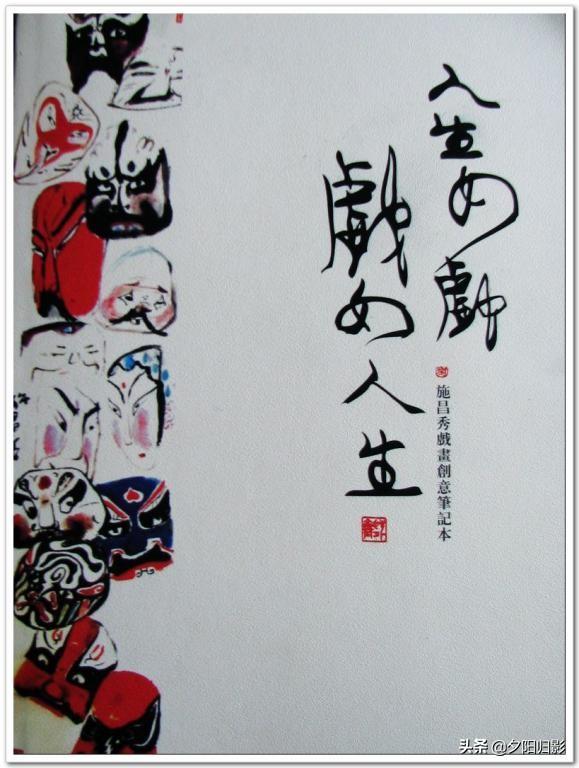 人生如戲
戲如人生
施昌秀戲畫創意筆記本
头条 @夕阳归影